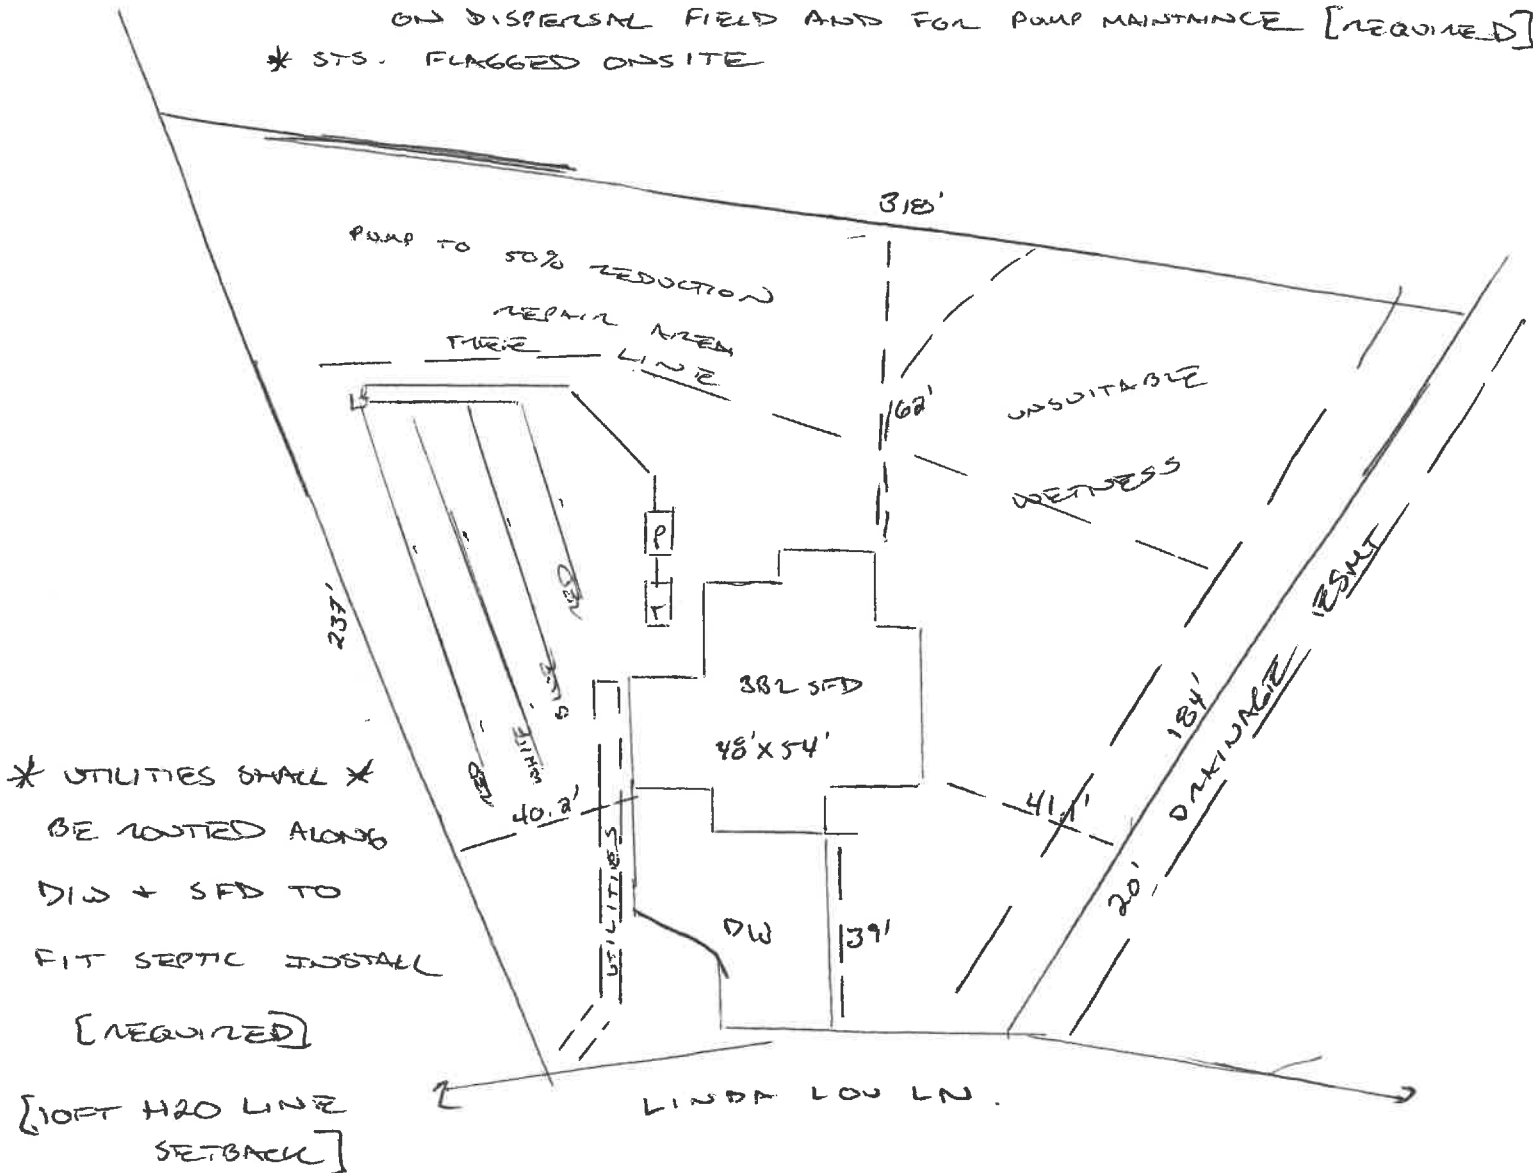 ON DISPERSAL FIELD AND FOR PUMP MAINTAINCE [REQUIRED]
* STS. FLAGGED ONSITE
318'
PUMP TO 50% REDUCTION
REPAIR AREA
TREE LINE
62'
UNSUITABLE
WETNESS
P
T
RED
BLUE
WHITE
RED
237'
3BR SFD
48' X 54'
184'
DRAINAGE ESMT
20'
40.2'
41.1'
UTILITIES
DW
39'
* UTILITIES SHALL *
BE ROUTED ALONG
D/W + SFD TO
FIT SEPTIC INSTALL
[REQUIRED]
[10FT H20 LINE
SETBACK]
LINDA LOU LN.